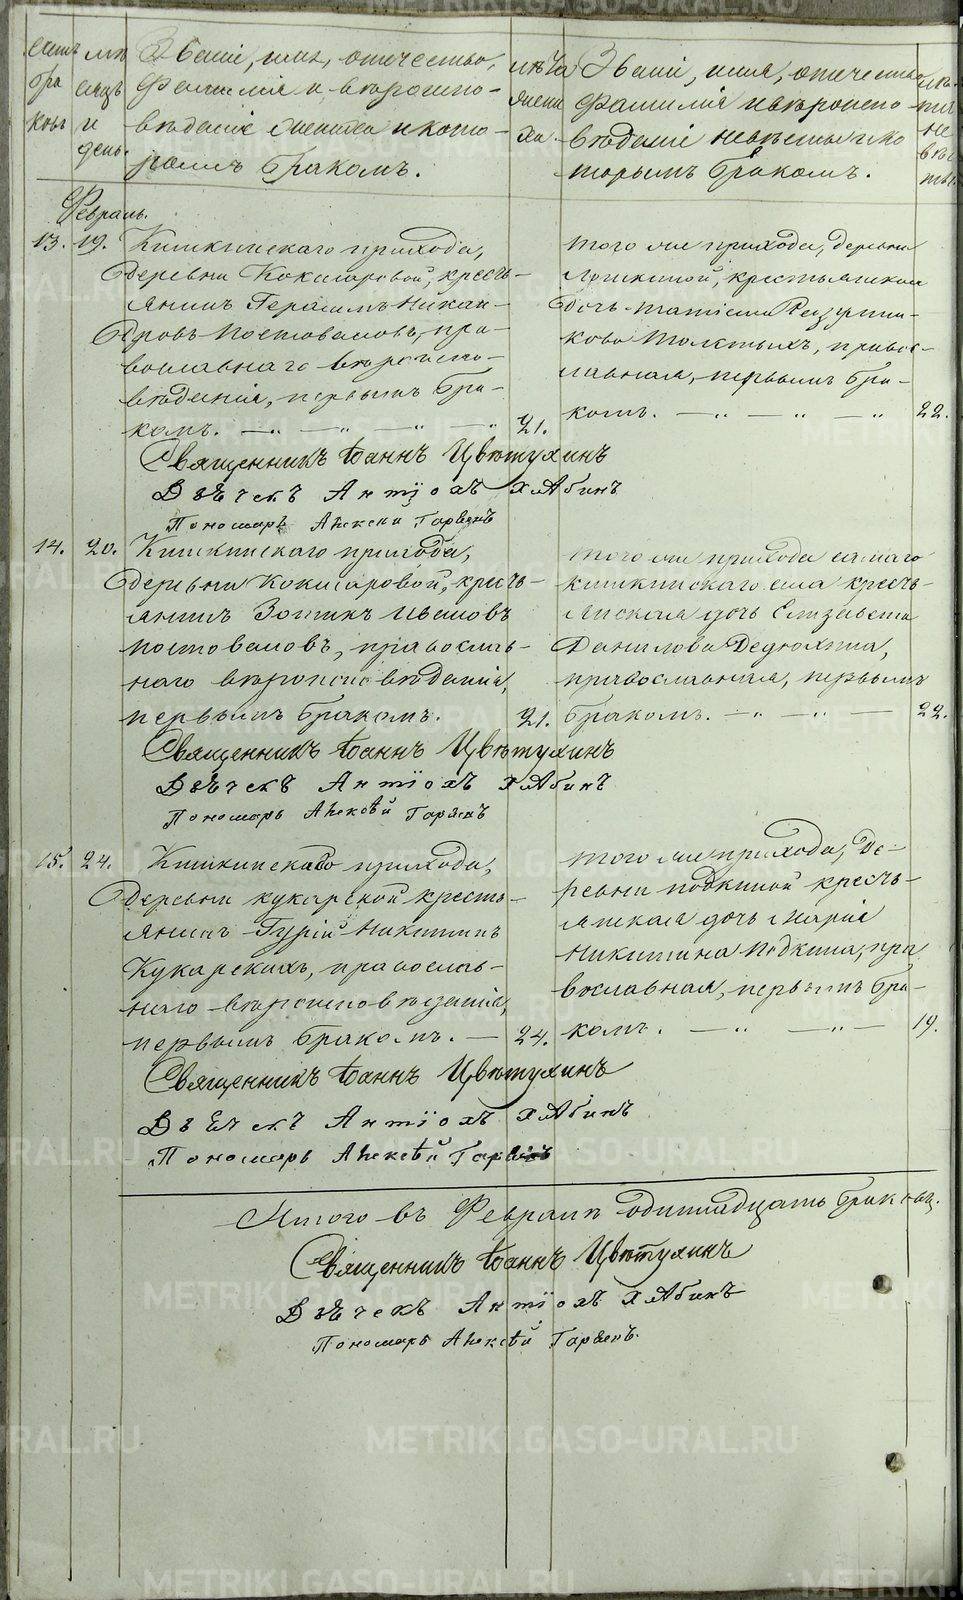 Счетъ браковъ
Мѣсяцъ и день.
Званіе, имя, отчество,
фамилія и вѣроиспо-
вѣданіе жениха и кото-
рымъ бракомъ.
Лѣта жениха.
Званіе, имя, отчество
фамилія и вѣроиспо-
вѣданіе невѣсты и ко
торымъ бракомъ.
Февраль.
13. 19. Кишкинскаго прихода,
деревни Кокшаровой, кресть-
янинъ Герасимъ Никан-
дровъ Постоваловъ, пра-
вославнаго вѣроиспо-
вѣданія, первымъ бра-
комъ. 21.
того же прихода, деревни
крестьянская
дочь
Толстыхъ, правос-
лавная, первымъ бра-
комъ. 22.
Священникъ Іоаннъ Цвѣтухинъ
Дьячекъ Антіохъ Хлѣбинъ
Пономарь Алексѣй
14. 20. Кишкинскаго прихода,
деревни Кокшаровой, кресть-
янинъ Зотикъ Ивановъ
Постоваловъ, православ-
наго вѣроисповѣданія,
первымъ бракомъ. 21.
того же прихода самаго
Кишкинскаго села кресть-
янская дочь Елизавета
Данилова Дедюхина,
православная, первымъ
бракомъ. 22.
Священникъ Іоаннъ Цвѣтухинъ
Дьячекъ Антіохъ Хлѣбинъ
Пономарь Алексѣй
15. 24. Кишкинскаго прихода,
деревни Кукарской кресть-
янинъ Гурій Никитинъ
Кукарскихъ, православ-
наго вѣроисповѣданія,
первымъ бракомъ. 24.
того же прихода, де-
ревни Подкиной кресть-
янская дочь Марія
Никитина Подкина, пра
вославная, первымъ бра-
комъ. 19.
Священникъ Іоаннъ Цвѣтухинъ
Дьячекъ Антіохъ Хлѣбинъ
Пономарь Алексѣй
Итого въ Февралѣ одинадцать браковъ.
Священникъ Іоаннъ Цвѣтухинъ
Дьячекъ Антіохъ Хлѣбинъ
Пономарь Алексѣй
METRIKI.GASO-URAL.RU